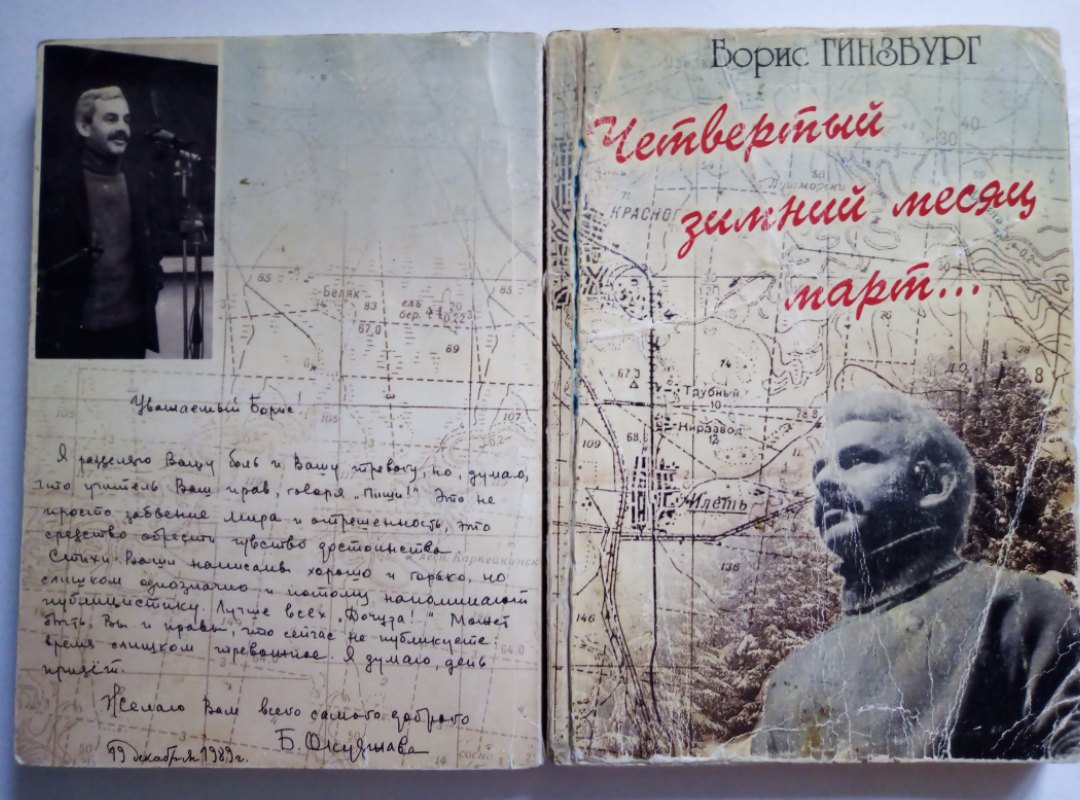 Уважаемый Борис!
Я разделяю Вашу боль и Вашу тревогу, но, думаю,
что учитель Ваш прав, говоря „Пиши!" Это не
просто забвение мира и отрешенность, это
средство обрести чувство достоинства
Стихи Ваши написаны хорошо и горько, но
слишком однозначно и потому напоминают
публицистику. Лучше всех „Дочура!.." Может
быть, Вы и правы, что сейчас не публикуете:
время слишком тревожное. Я думаю, день
придёт.
Желаю Вам всего самого доброго
Б. Окуджава
19 декабря 1989г.
Беляк
83
67.0
ель
бер.
69
85
85
105
105
107
64.0
Борис ГИНЗБУРГ
Четвертый
зимний месяц
март...
40
30
КРАСНОГ
Трубный
10
Кирзавод
12
109
Илеть
136
146
74
76